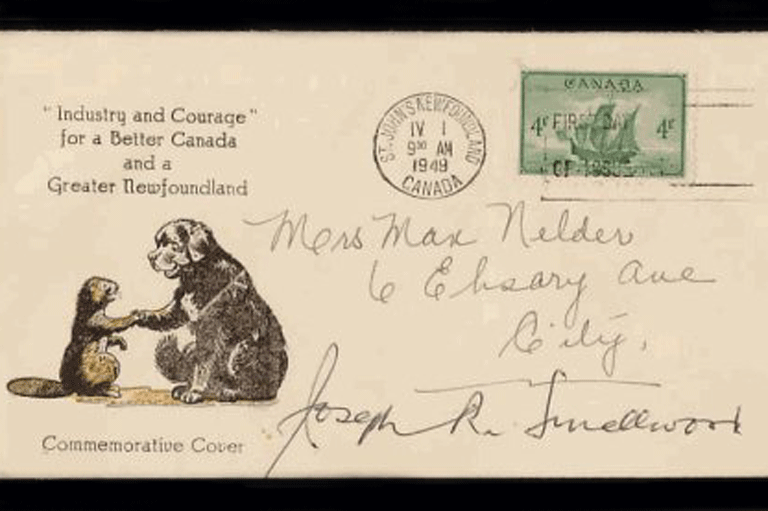 " Industry and Courage "
for a Better Canada
and a
Greater Newfoundland
ST. JOHN'S NEWFOUNDLAND
IV 1
9³⁰ AM
1949
CANADA
CANADA
4¢ FIRST DAY 4¢
OF ISSUE
Mrs Max Nelder
6 Ebsary Ave
City.
Joseph R. Smallwood
Commemorative Cover